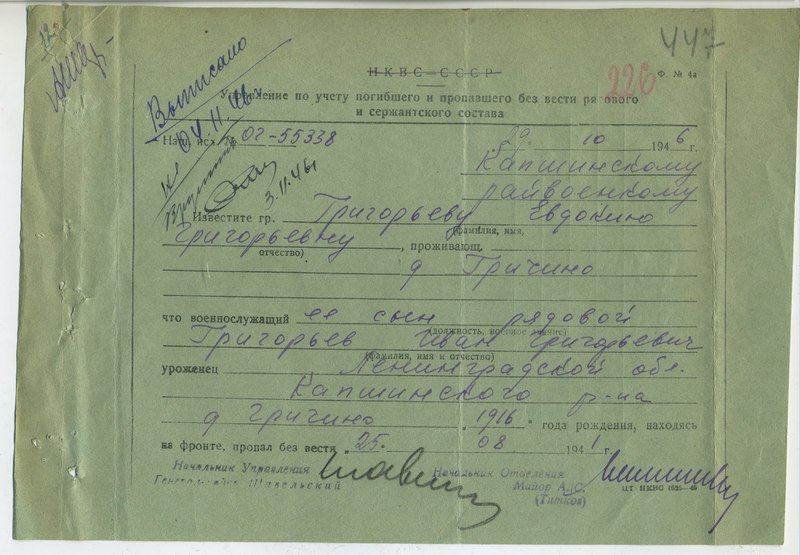 447
НКВС—СССР
226
Ф. № 4а
Выписано
04.11.46 г
Управление по учету погибшего и пропавшего без вести рядового
и сержантского состава
Наш. исх. № 02-55338
29 10 1946 г.
Капшинскому
райвоенкому
3.11.46г
Известите гр. Григорьеву Евдокию
(фамилия, имя,
Григорьевну, проживающ.
отчество)
д Гричино
что военнослужащий ее сын рядовой
(должность, военное звание)
Григорьев Иван Григорьевич
(фамилия, имя и отчество)
уроженец Ленинградской обл.
Капшинского р-на
д Гричино 1916. года рождения, находясь
на фронте, пропал без вести 25. 08 1941 г.
Начальник Управления
Начальник Отделения
Майор А.С.
(Титков)